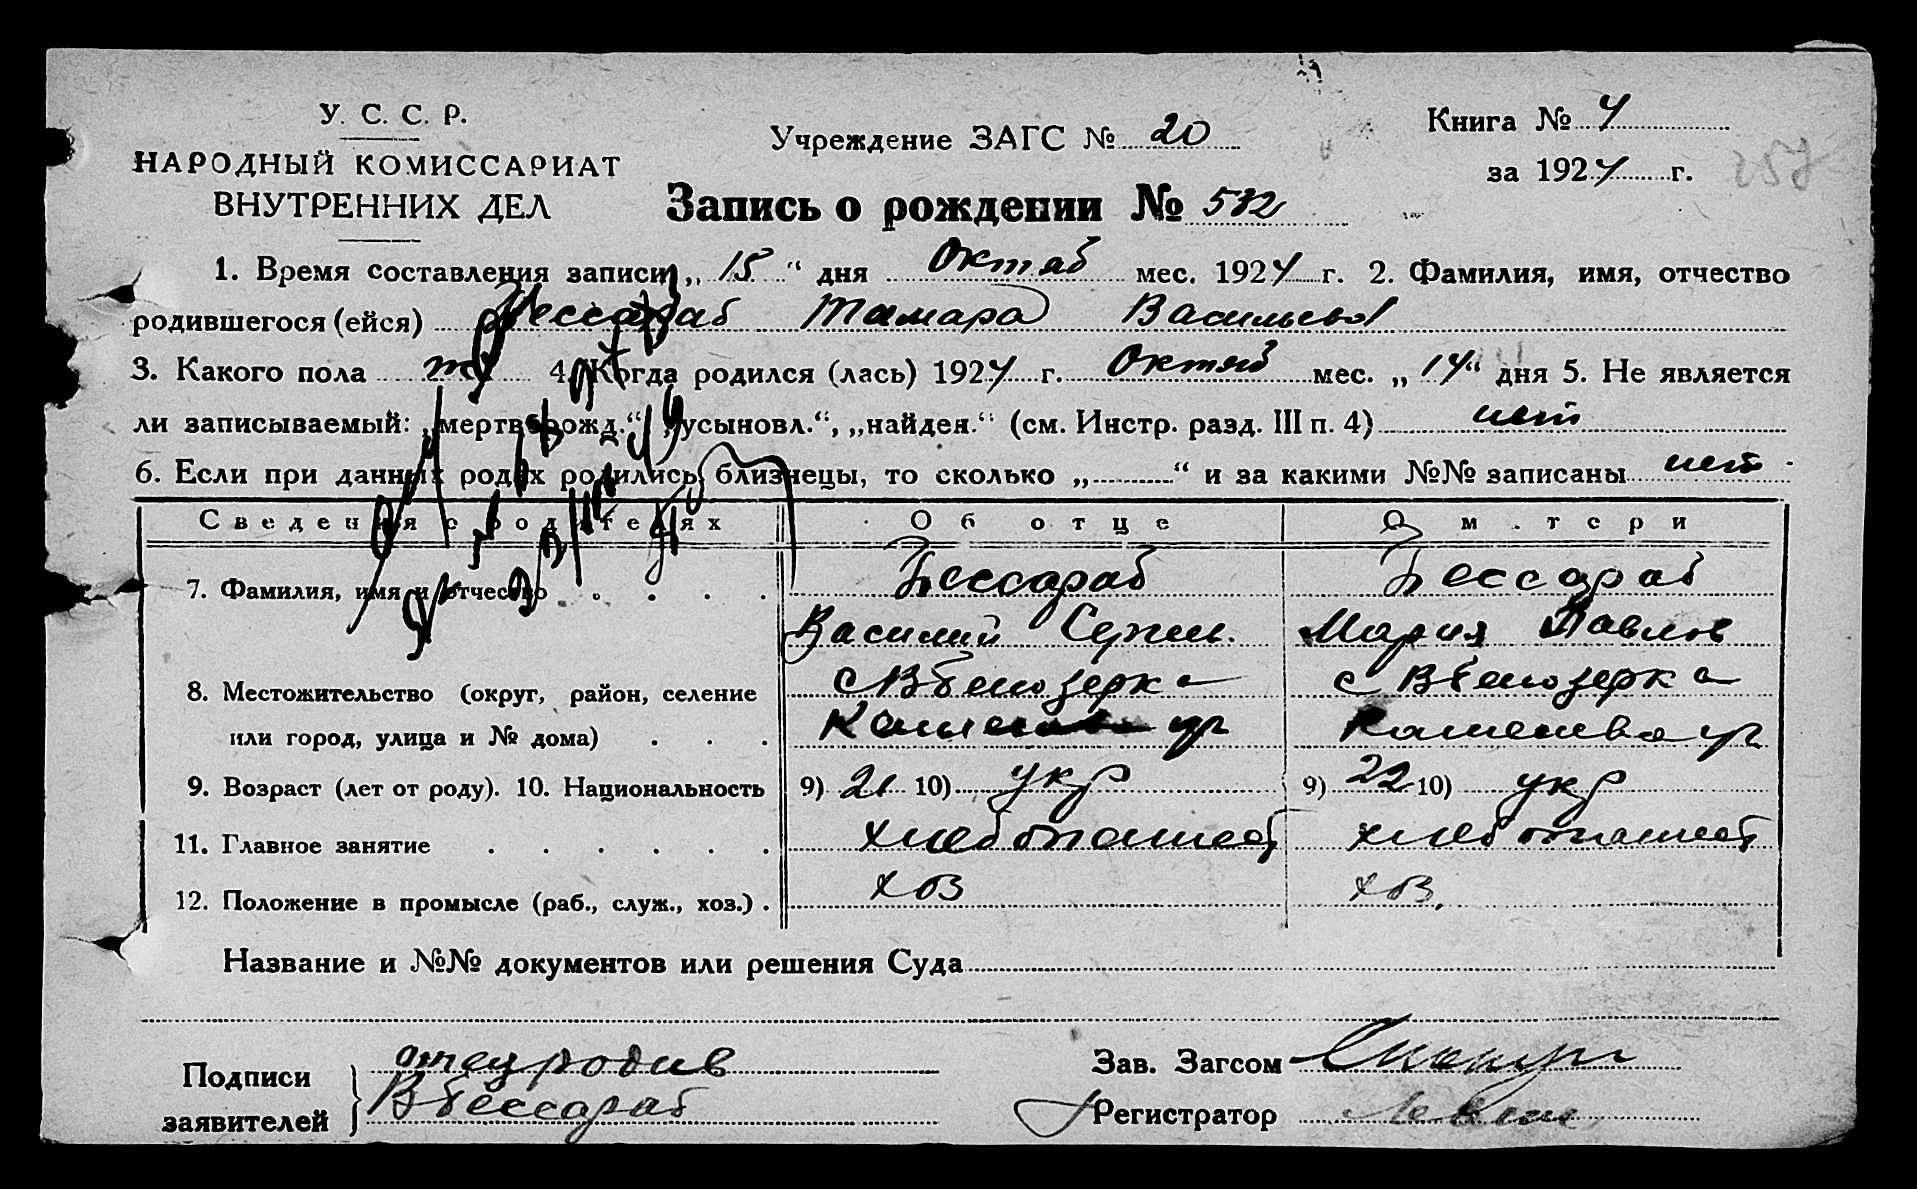 У. С. С. Р.
НАРОДНЫЙ КОМИССАРИАТ
ВНУТРЕННИХ ДЕЛ
Учреждение ЗАГС № 20
Книга № 4
за 1924 г.
Запись о рождении № 572
1. Время составления записи „ 15 “ дня Октяб мес. 1924 г. 2. Фамилия, имя, отчество
родившегося (ейся) Бессараб Тамара Васильевн
3. Какого пола 4. Когда родился (лась) 1924 г. Октяб мес. „ 14 “ дня 5. Не является
ли записываемый: „мертворожд.“ „усыновл.“, „найден.“ (см. Инстр. разд. III п. 4) нет
6. Если при данных родах родились близнецы, то сколько „ “ и за какими №№ записаны нет
Сведения о родителях Об отце О матери
7. Фамилия, имя и отчество Бессараб Бессараб
Василий Сергеев. Мария Павлов
8. Местожительство (округ, район, селение с Вбелозерка с Вбелозерка
или город, улица и № дома) Каменев Каменева
9. Возраст (лет от роду). 10. Национальность 9) 21 10) укр 9) 22 10) укр
11. Главное занятие хлебопашест хлебопашест
12. Положение в промысле (раб., служ., хоз.) хоз хоз.
Название и №№ документов или решения Суда
Подписи
заявителей
отец родив
ВБессараб
Зав. Загсом
Регистратор